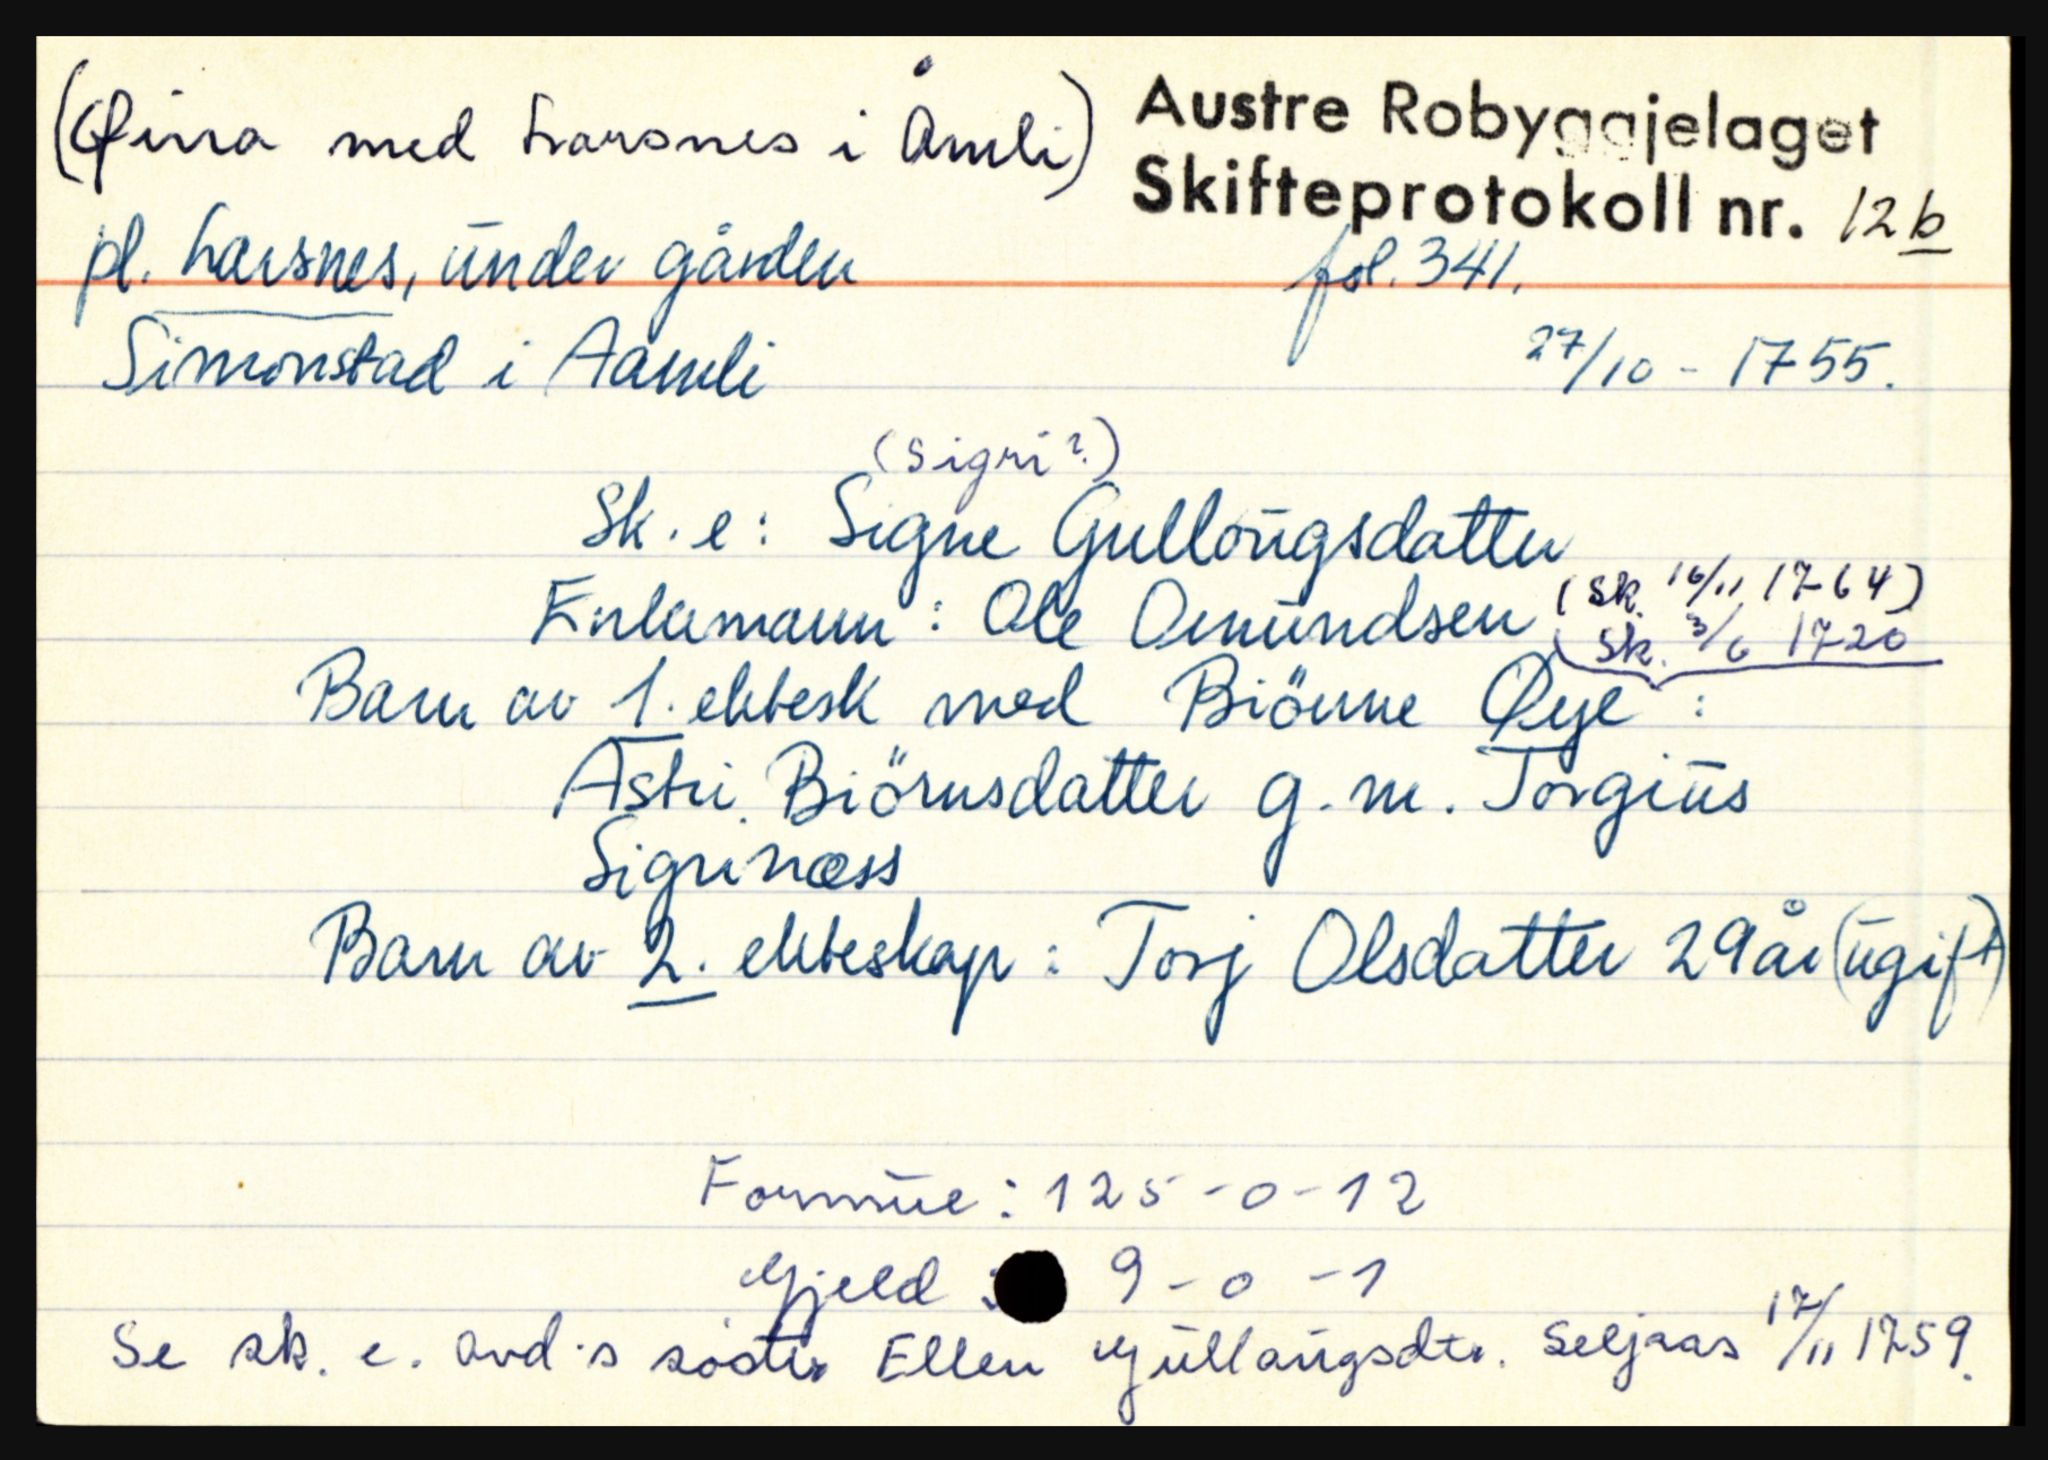 (Øina med Larsnes i Åmli)
Austre Robyggjelaget
Skifteprotokoll nr. 12b
pl. Larsnes, under gården
fol. 341.
Simonstad i Aamli
27/10 - 1755.
(Sigri?)
Sk. e: Signe Gullougsdatter
Enkemann: Ole Omundsen (Sk. 16/11 1764)
Sk. 3/6 1720
Barn av 1. ektesk med Biönne Øye:
Astri Biörnsdatter g. m. Torgius
Sigrinæss
Barn av 2. ekteskap: Torj Olsdatter 29 år (ugift)
Formue: 125-0-12
Gjeld : 9-0-1
Se sk. e. avd.s söster Ellen Gullaugsdtr. Seljaas 17/11 1759.